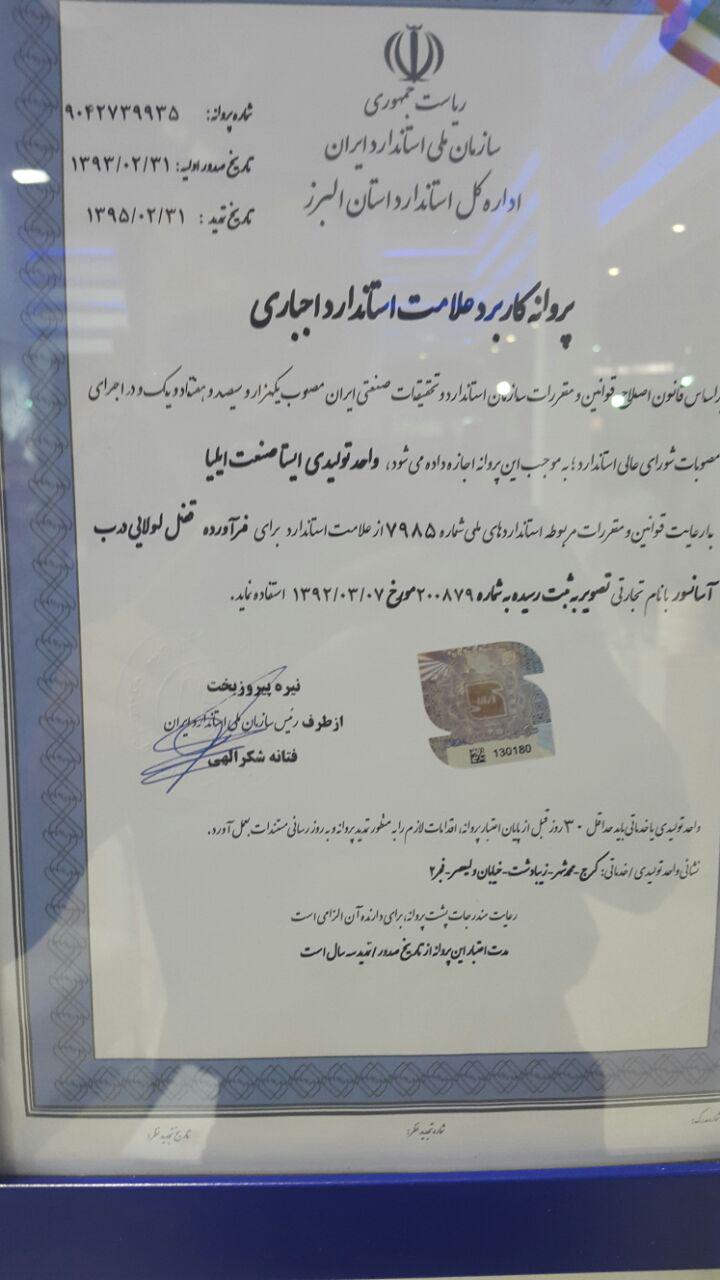 ریاست جمهوری
سازمان ملی استاندارد ایران
اداره کل استاندارد استان البرز
شماره پروانه: ۹۰۴۲۷۳۹۹۳۵
تاریخ صدور اولیه: ۱۳۹۳/۰۲/۳۱
تاریخ تمدید : ۱۳۹۵/۰۲/۳۱
پروانه کاربرد علامت استاندارد اجباری
براساس قانون اصلاح قوانین و مقررات سازمان استاندارد و تحقیقات صنعتی ایران مصوب یکهزار و سیصد و هفتاد و یک و در اجرای
مصوبات شورای عالی استاندارد ؛ به موجب این پروانه اجازه داده می شود، واحد تولیدی ایستا صنعت ایلیا
با رعایت قوانین و مقررات مربوطه استانداردهای ملی شماره ۷۹۸۵ از علامت استاندارد برای فرآورده قفل لولایی درب
آسانسور با نام تجارتی تصویر به ثبت رسیده به شماره ۲۰۰۸۷۹ مورخ ۱۳۹۲/۰۳/۰۷ استفاده نماید.
نیره پیروزبخت
از طرف رئیس سازمان ملی استاندارد ایران
فتانه شکرالهی
130180
واحد تولیدی یا خدماتی باید حداقل ۳۰ روز قبل از پایان اعتبار پروانه، اقدامات لازم را به منظور تمدید پروانه و به روز رسانی مستندات بعمل آورد.
نشانی واحد تولیدی / خدماتی: کرج-محمدشهر-زیبادشت-خیابان ولیعصر-فجر۲
رعایت مندرجات پشت پروانه، برای دارنده آن الزامی است
مدت اعتبار این پروانه از تاریخ صدور / تمدید سه سال است
شماره تجدید نظر:
تاریخ تجدید نظر: